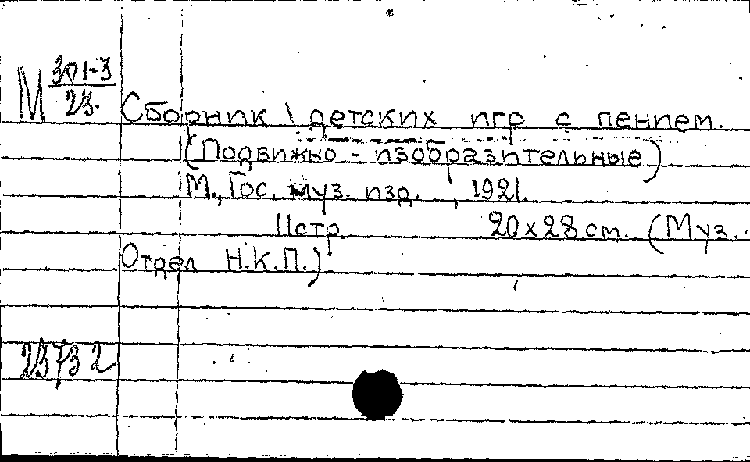 М 301-3
23.
Сборник \ детских игр с пением.
(Подвижно - изобразительные)
М., Гос. муз. изд. , 1921.
11стр. 20x28 см. (Муз.
Отдел Н.К.П.)
23732